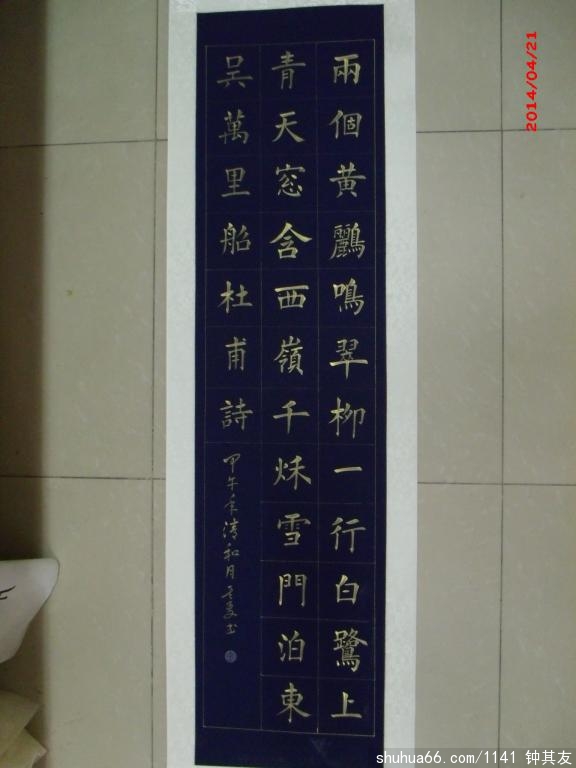 兩個黃鸝鳴翠柳一行白鷺上
青天窓含西嶺千秌雪門泊東
吴萬里船杜甫詩
甲午年清和月
书
2014/04/21
shuhua66.com/1141 钟其友